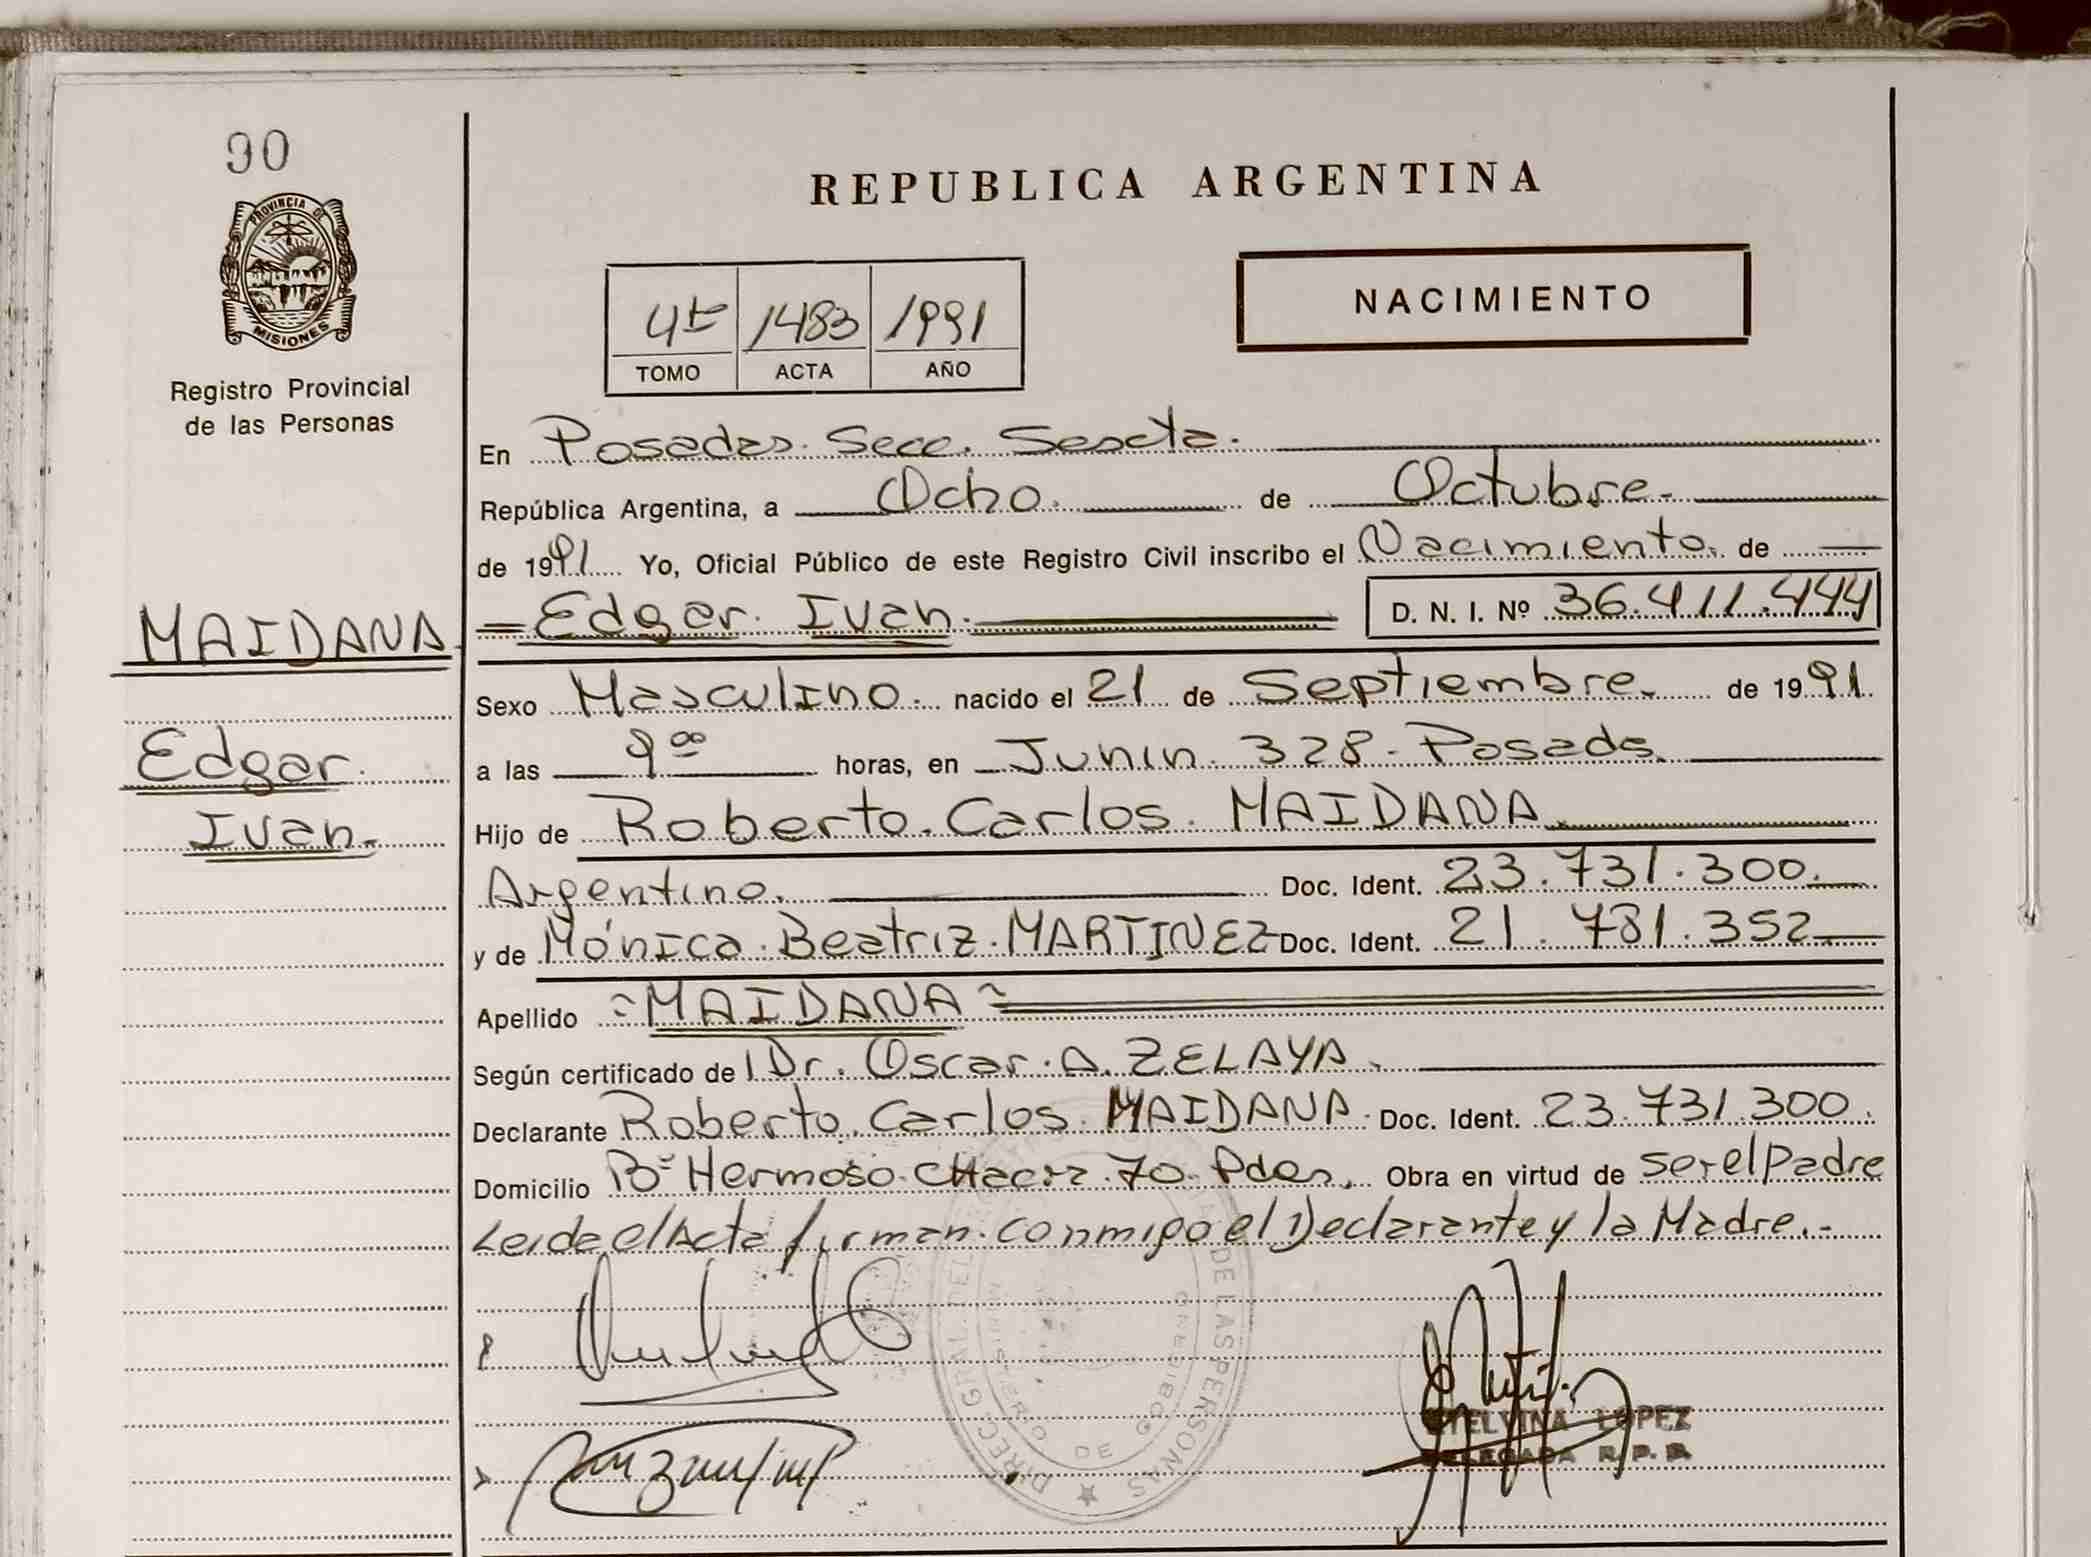 90
PROVINCIA DE
MISIONES
Registro Provincial
de las Personas
MAIDANA
Edgar
Ivan.
REPUBLICA ARGENTINA
NACIMIENTO
4to 1483 1991
TOMO ACTA AÑO
En Posadas. Secc. Sexta.
República Argentina, a Ocho. de Octubre.
de 1991 Yo, Oficial Público de este Registro Civil inscribo el Nacimiento. de
Edgar. Ivan. D. N. I. Nº 36.411.444
Sexo Masculino. nacido el 21 de Septiembre. de 1991.
a las 9 oo horas, en Junin. 328 - Posads.
Hijo de Roberto. Carlos. MAIDANA.
Argentino. Doc. Ident. 23.731.300.
y de Mónica. Beatriz. MARTINEZ Doc. Ident. 21.781.352
Apellido =MAIDANA=
Según certificado del Dr. Oscar. A. ZELAYA.
Declarante Roberto. Carlos. MAIDANA. Doc. Ident. 23.731.300.
Domicilio Bº Hermoso. CHacra. 70. Pdas. Obra en virtud de ser el Padre
Leida el Acta firman. conmigo el Declarante y la Madre.-
DIREC. GRAL. DEL DE LAS PERSONAS
MINISTERIO DE GOBIERNO
ETELVINA LOPEZ
DELEGADA R. P. P.